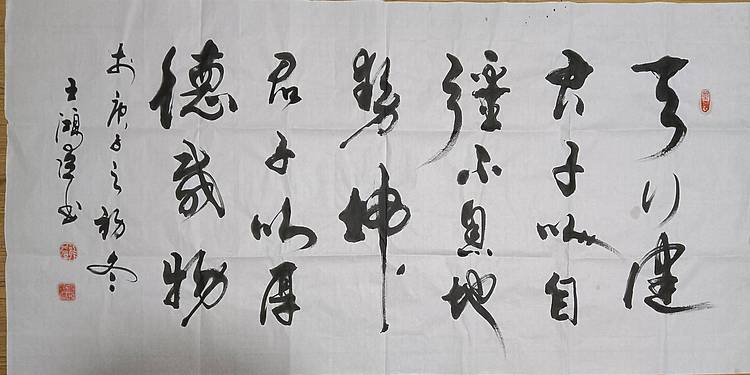 天行健
君子以自
彊不息地
势坤
君子以厚
德载物
于庚子之初冬
王鸿㳺书